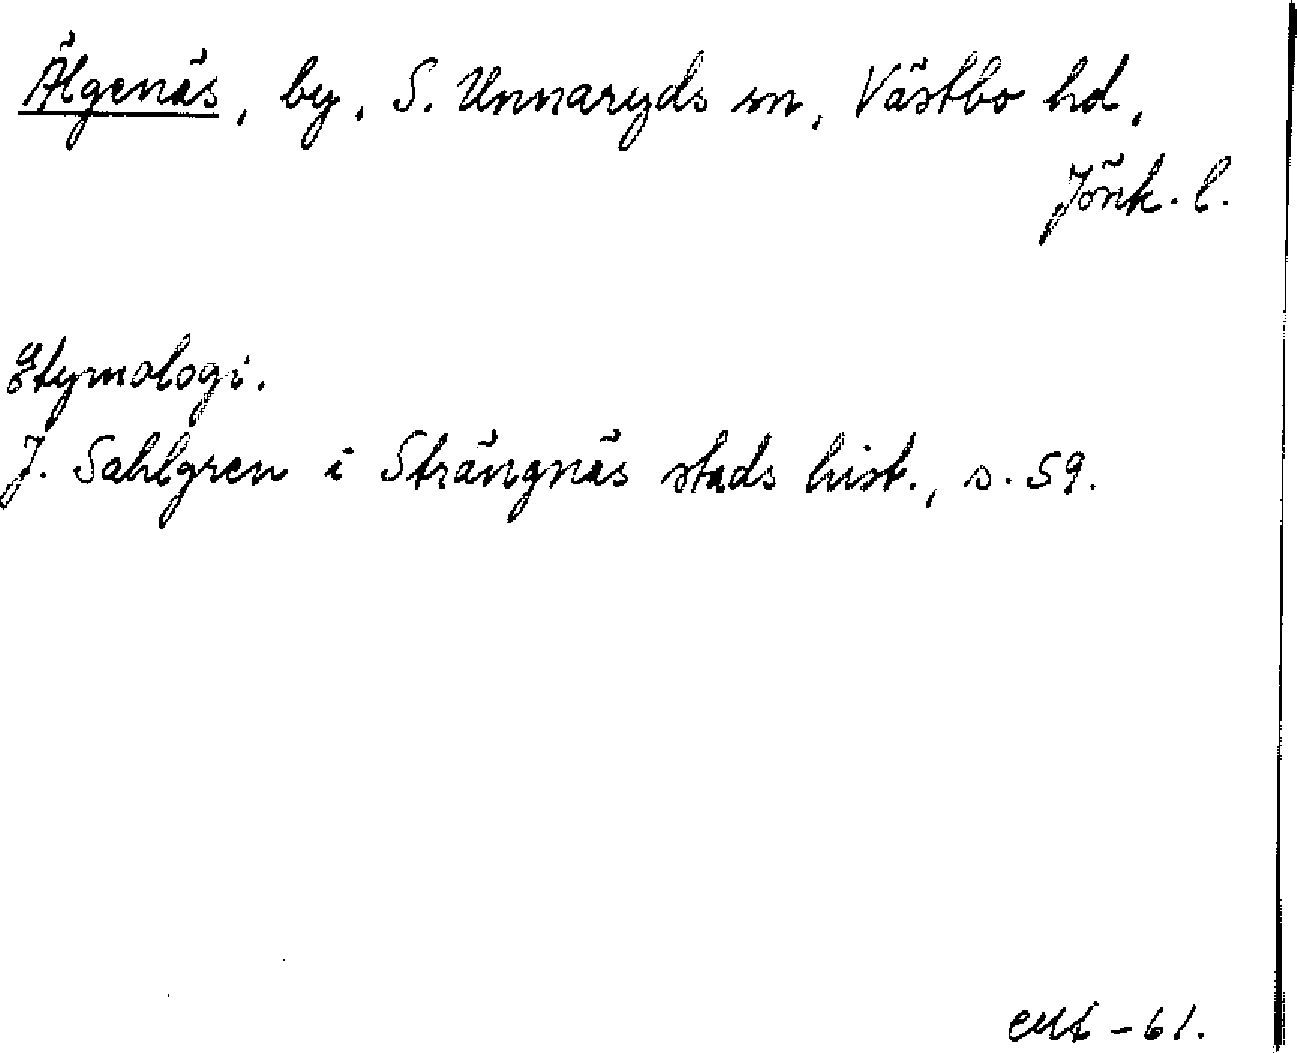 Älgenäs, by, S. Unnaryds sn, Västbo hd,
Jönk. l.
Etymologi.
J. Sahlgren i Strängnäs stads hist., s. 59.
-61.